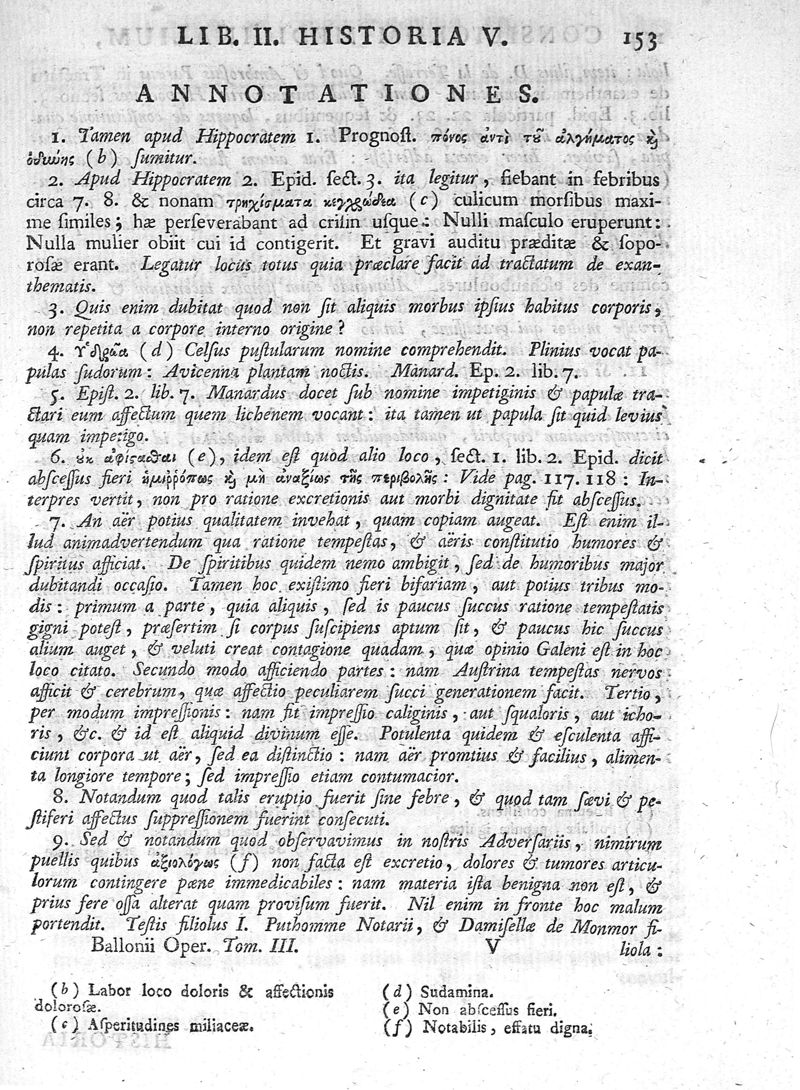 LIB. II. HISTORIA V. 153
ANNOTATIONES.
1. Tamen apud Hippocratem 1. Prognoſt. πόνος ἀντὶ τοῦ ἀλγήματος καὶ
ὀδύνης (b) ſumitur.
2. Apud Hippocratem 2. Epid. ſect. 3. ita legitur, fiebant in febribus
circa 7. 8. & nonam τρηχίσματα κεγχρώδεα (c) culicum morſibus maxi-
me ſimiles; hæ perſeverabant ad criſin uſque: Nulli maſculo eruperunt:
Nulla mulier obiit cui id contigerit. Et gravi auditu præditæ & ſopo-
roſæ erant. Legatur locus totus quia præclare facit ad tractatum de exan-
thematis.
3. Quis enim dubitat quod non ſit aliquis morbus ipſius habitus corporis,
non repetita a corpore interno origine?
4. Υ῾δρῶα (d) Celſus puſtularum nomine comprehendit. Plinius vocat pa-
pulas ſudorum: Avicenna plantam noctis. Manard. Ep. 2. lib. 7.
5. Epiſt. 2. lib. 7. Manardus docet ſub nomine impetiginis & papulæ tra-
ctari eum affectum quem lichenem vocant: ita tamen ut papula ſit quid levius
quam impetigo.
6. οὐκ ἀφίςαϑαι (e), idem eſt quod alio loco, ſect. 1. lib. 2. Epid. dicit
abſceſſus fieri ἡμιῤῥόπως καὶ μὴ ἀναξίως τῆς περιβολῆς: Vide pag. 117. 118: In-
terpres vertit, non pro ratione excretionis aut morbi dignitate fit abſceſſus.
7. An aër potius qualitatem invehat, quam copiam augeat. Eſt enim il-
lud animadvertendum qua ratione tempeſtas, & aëris conſtitutio humores &
ſpiritus afficiat. De ſpiritibus quidem nemo ambigit, ſed de humoribus major
dubitandi occaſio. Tamen hoc exiſtimo fieri bifariam, aut potius tribus mo-
dis: primum a parte, quia aliquis, ſed is paucus ſuccus ratione tempeſtatis
gigni poteſt, præſertim ſi corpus ſuſcipiens aptum ſit, & paucus hic ſuccus
alium auget, & veluti creat contagione quadam, quæ opinio Galeni eſt in hoc
loco citato. Secundo modo afficiendo partes: nam Auſtrina tempeſtas nervos
afficit & cerebrum, quæ affectio peculiarem ſucci generationem facit. Tertio,
per modum impreſſionis: nam fit impreſſio caliginis, aut ſqualoris, aut icho-
ris, &c. & id eſt aliquid divinum eſſe. Potulenta quidem & eſculenta affi-
ciunt corpora ut aër, ſed ea diſtinctio: nam aër promtius & facilius, alimen-
ta longiore tempore; ſed impreſſio etiam contumacior.
8. Notandum quod talis eruptio fuerit ſine febre, & quod tam ſævi & pe-
ſtiferi affectus ſuppreſſionem fuerint conſecuti.
9. Sed & notandum quod obſervavimus in noſtris Adverſariis, nimirum
puellis quibus ἀξιολόγως (f) non facta eſt excretio, dolores & tumores articu-
lorum contingere pæne immedicabiles: nam materia iſta benigna non eſt, &
prius fere oſſa alterat quam proviſum fuerit. Nil enim in fronte hoc malum
portendit. Teſtis filiolus I. Puthomme Notarii, & Damiſellæ de Monmor fi-
Ballonii Oper. Tom. III. V liola:
(b) Labor loco doloris & affectionis
doloroſæ.
(c) Aſperitudines miliaceæ.
(d) Sudamina.
(e) Non abſceſſus fieri.
(f) Notabilis, effatu digna.